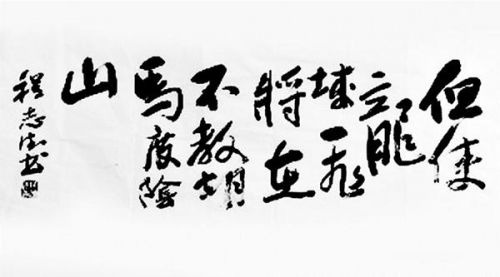 但使
龍
城飛
將在
不教胡
馬度陰
山
程志书